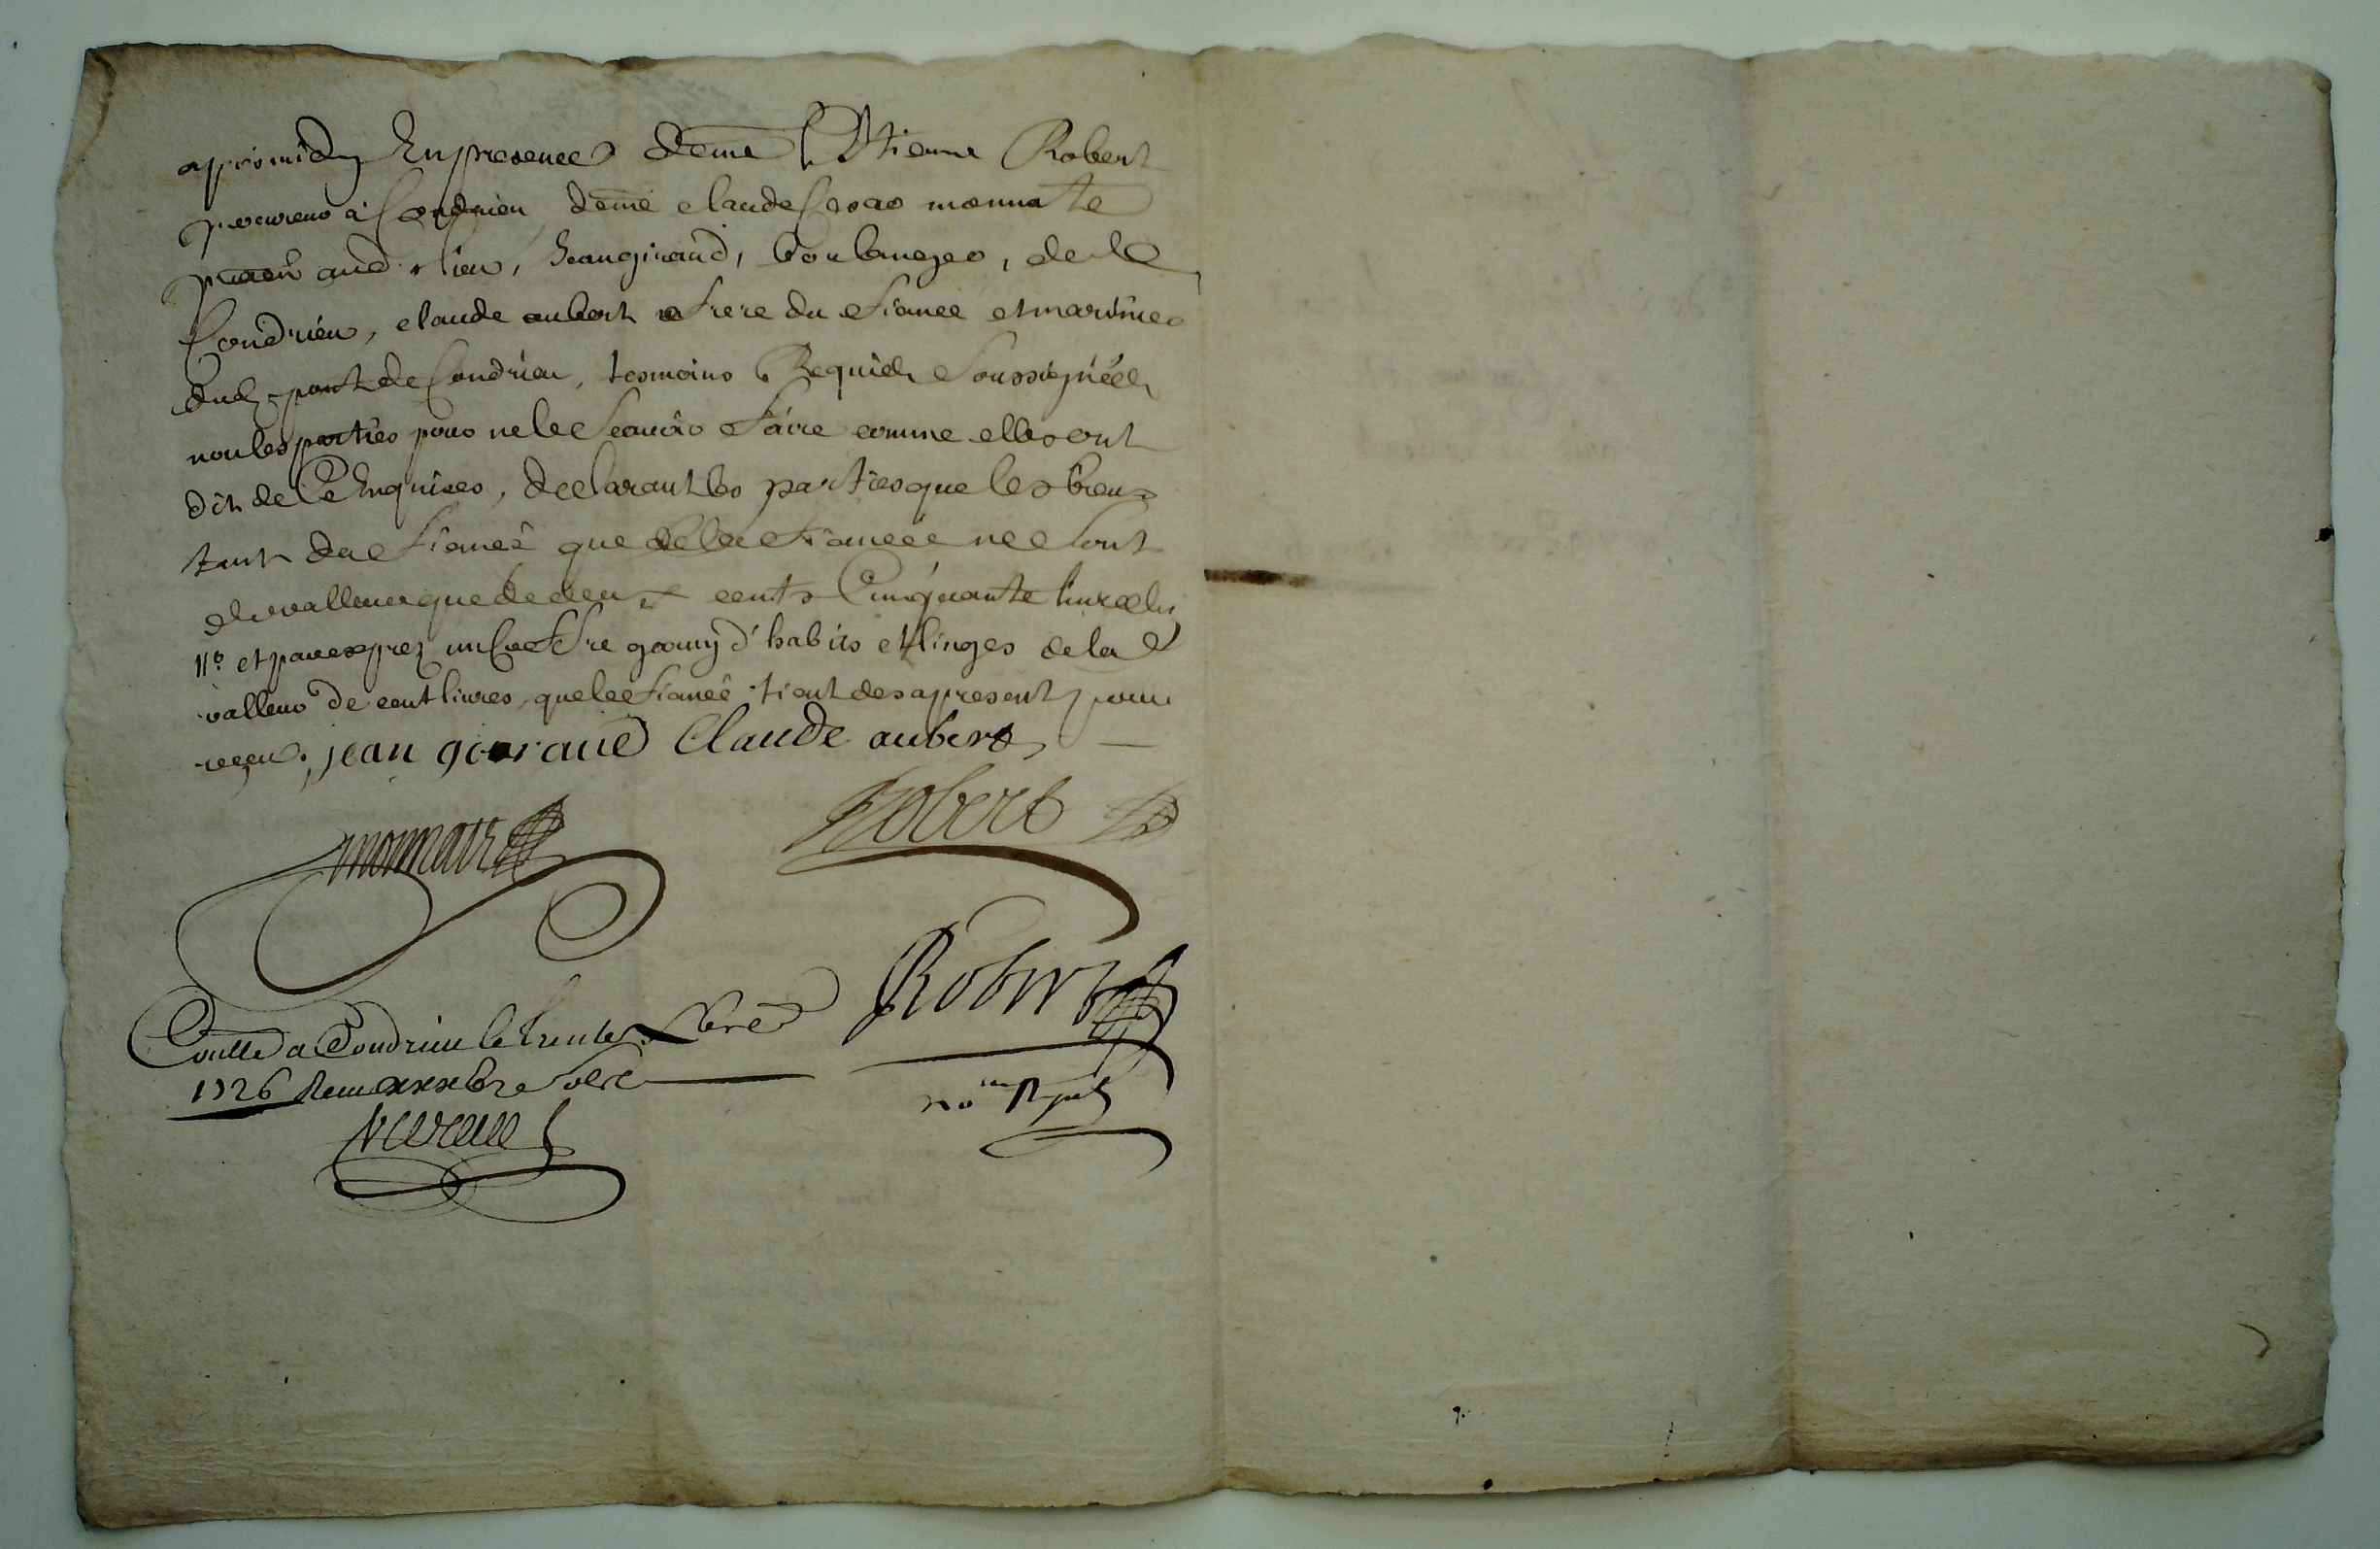 apresmidy En presence de me Estienne Robert
procureur à Condrieu, de me claude Cesar monnate
procr aud. lieu, Jean giraud, boulanger, de
Condrieu, claude aubert frere du fiancé et marinier
dud. port de Condrieu, tesmoins Requis Soussignés
non les parties pour ne le Scavoir faire comme elles ont
dit de ce Enquises, declarant les parties que les biens
tant du fiancé que de la fiancée ne Sont
de valleur que de deux cents Cinquante livres
et par exprez un Coffre garny d'habits et linges de la
valleur de cent livres, que le fiancé tient des apresent pour
reçeu. jean giraud Claude aubert
Robert
Robert
Contté a Condrieu le trente
1726 Receu Sols
no.re Royal